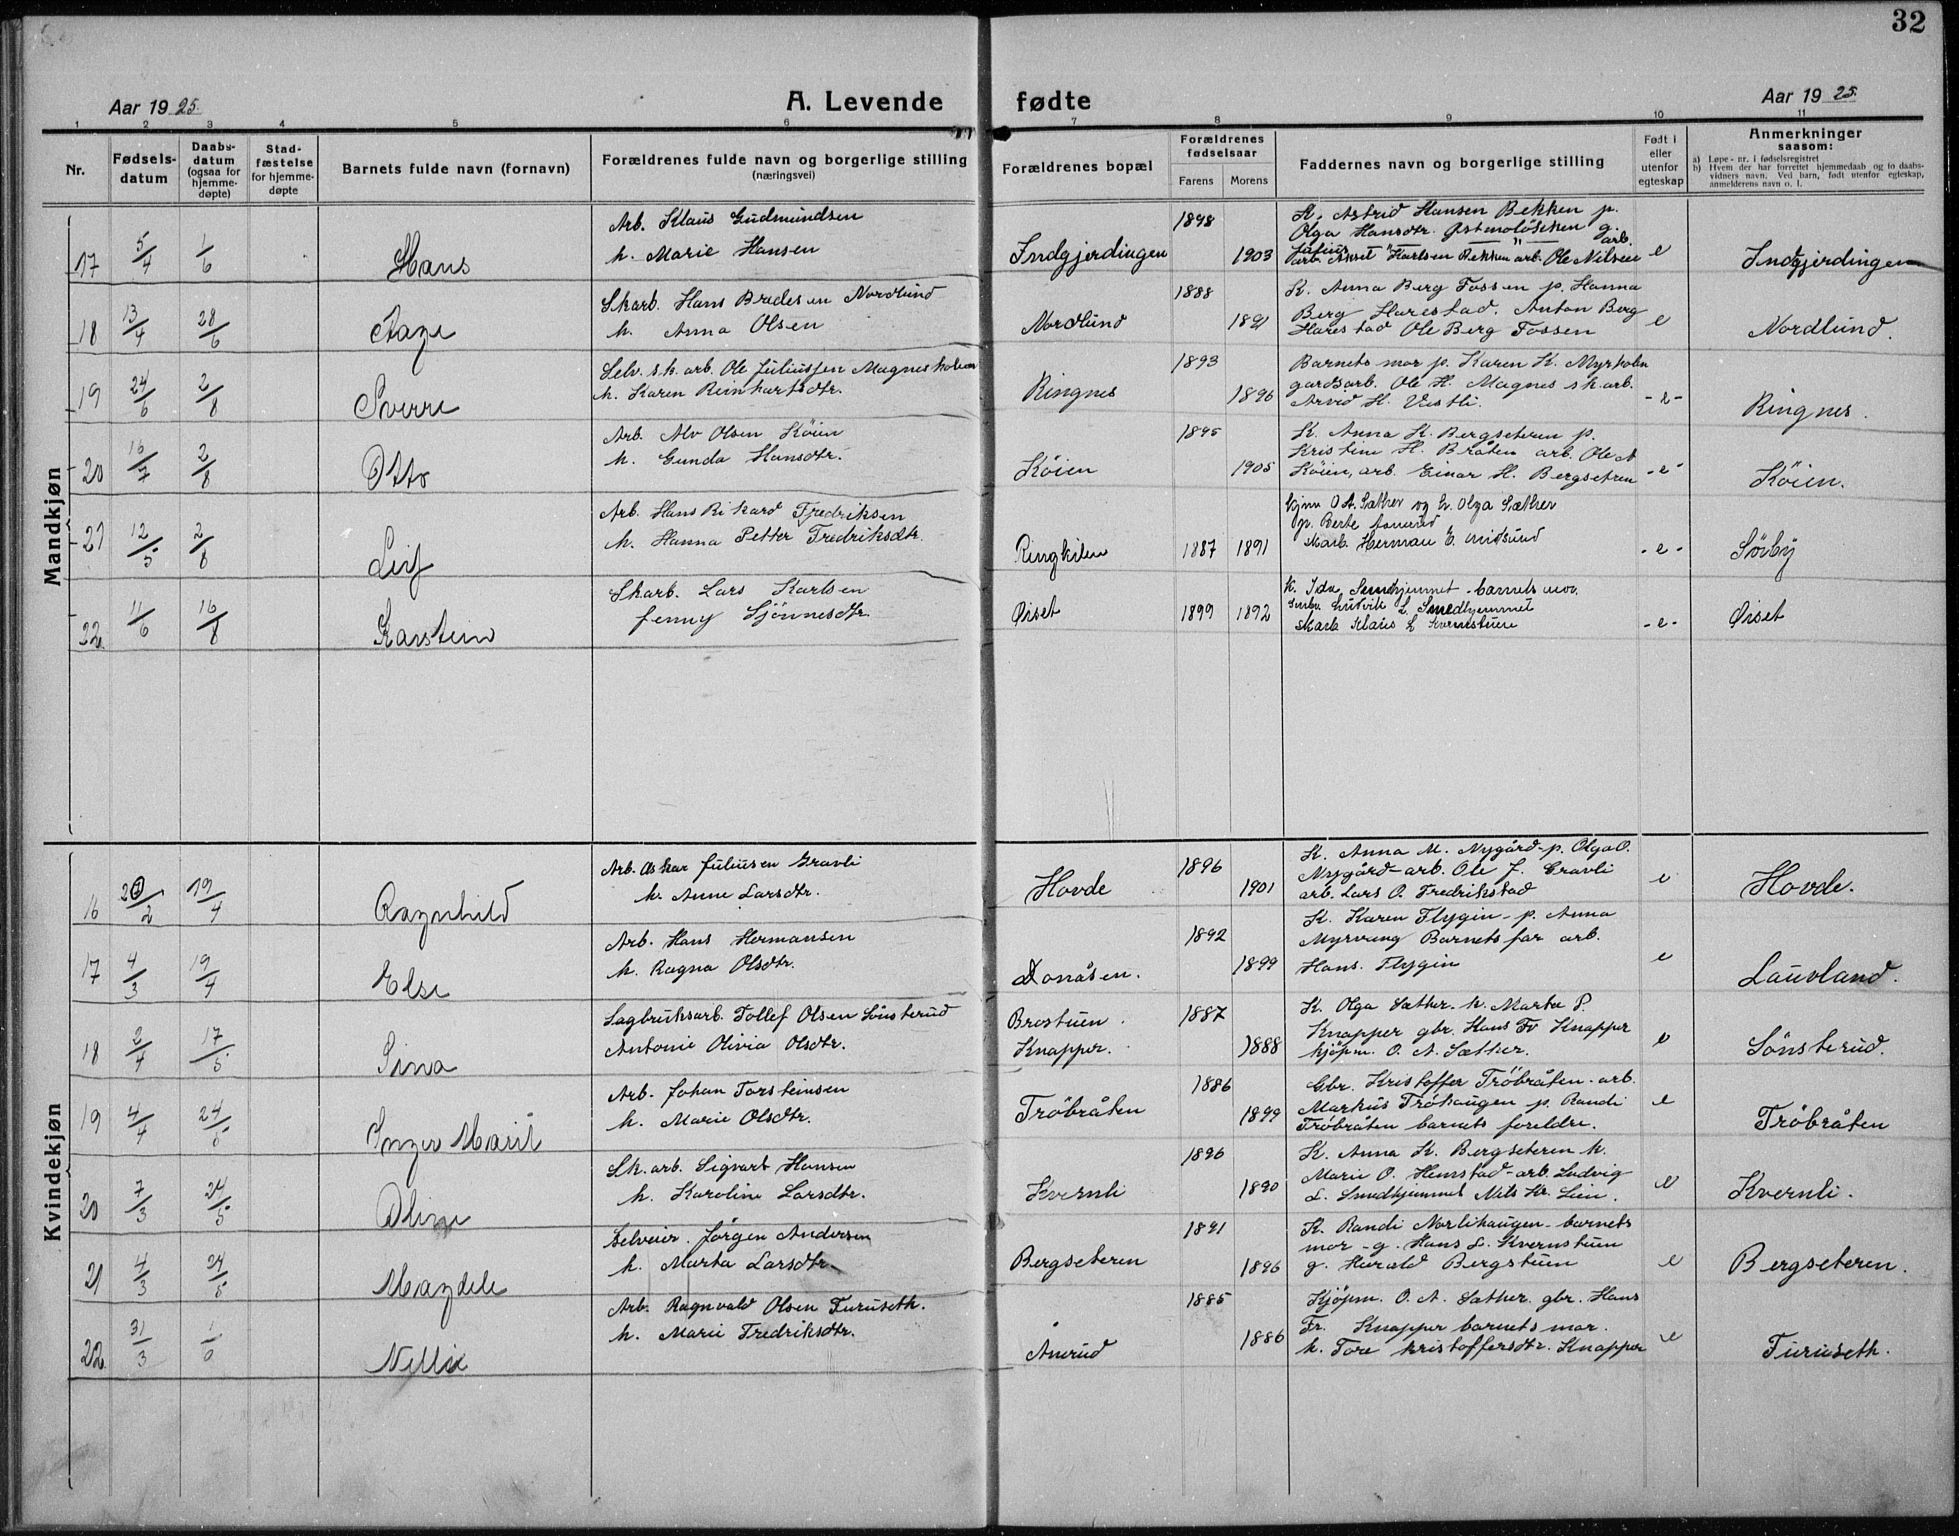 32
Aar 1925.
A. Levende fødte
Aar 1925.
1 2 3 4 5 6 7 8 9 10 11
Nr.
Fødsels-
datum
Daabs-
datum
(ogsaa for
hjemme-
døpte)
Stad-
fæstelse
for hjemme-
døpte
Barnets fulde navn (fornavn)
Forældrenes fulde navn og borgerlige stilling
(næringsvei)
Forældrenes bopæl
Forældrenes
fødselsaar
Farens Morens
Faddernes navn og borgerlige stilling
Født i
eller
utenfor
egteskap
Anmerkninger
saasom:
a) Løpe-nr. i fødselsregistret
b) Hvem der har forrettet hjemmedaab og to daabs-
vidners navn. Ved barn, født utenfor egteskap,
anmelderens navn o. l.
Mandkjøn
17 5/4 1/6 Hans
Arb. Klaus Gudmundsen
h. Marie Hansen
Indgjerdingen 1898 1903
K. Astrid Hansen Bekken p.
Olga Hansdtr. g.
arb. Karlsen Bekken arb. Ole Nilsen
e Indgjerdingen
18 13/4 28/6 Aage
Skarb. Hans Bredesen Nordlund
h. Anna Olsen
Nordlund 1888 1891
K. Anna Berg Fossen p. Hanna
Berg Harestad. Anton Berg
Harestad Ole Berg Fossen
e Nordlund.
19 24/6 2/8 Sverre
Selv. sk. arb. Ole Juliussen Magnesholen
h. Karen Reinhartsdtr.
Ringnes 1893 1896
Barnets mor p. Karen K. Myrholen
gardsarb. Ole H. Magnes sk. arb.
Arvid H. Vestli.
-e- Ringnes.
20 16/7 2/8 Otto
Arb. Alv Olsen Köien
h. Gunda Hansdtr.
Köien 1895 1905
K. Anna K. Bergseteren p.
Kristine H. Bråten arb. Ole A
Köien, arb. Einar H. Bergsetren
-e- Köien.
21 12/5 2/8 Leif
Arb. Hans Rikard Fredriksen
h. Hanna Petter Fredriksdtr.
Ringkilen 1887 1891
kjøpm O A Sæther og h. Olga Sæther
p. Berte
Herman E.
-e- Sörby
22 11/6 16/8 Karsten
Skarb. Lars Karlsen
Jenny Gjönnesdtr.
Øiset 1899 1892
K. Ida Smedhjemmet - barnets mor.
Ludvik L. Smedhjemmet
Klaus L Kvernstuen
-e- Øiset
Kvindekjøn
16 27/2 19/4 Ragnhild
Arb. Oskar Juliusen Gravli
h. Anne Larsdtr.
Hovde 1896 1901
K. Anna M. Nygård - p. Olga O.
Nygård - arb. Ole J. Gravli
arb. Lars O. Fredrikstad
e Hovde.
17 4/3 19/4 Else
Arb. Hans Hermansen
h. Ragna Olsdtr.
Donåsen. 1892 1899
K. Karen Flygin - p. Anna
Myrvang Barnets far arb.
Hans. Flygin
e Lauvland.
18 2/4 17/5 Sina
Sagbruksarb. Tollef Olsen Sönsterud
Antonie Olivia Olsdtr.
Brostuen.
Knapper. 1887 1888
K. Olga Sæther. h. Marta P.
Knapper gbr. Hans Fr Knapper
kjöpm. O. A. Sæther.
e Sönsterud.
19 4/4 24/5 Inger Marit
Arb. Johan Torsteinsen
h. Marie Olsdtr.
Tröbråten 1886 1899
Gbr. Kristoffer Tröbråten - arb.
Markus Tröhaugen p. Randi
Tröbråten barnets foreldre.
e Tröbråten
20 7/3 24/5 Oline
Sk. arb. Sigvart Hansen
h. Karoline Larsdtr.
Kvernli 1896 1890
K. Anna K. Bergseteren h.
Marie O. Hemstad - arb. Ludvig
L. Smedhjemmet Nils Kr. Lein.
e Kvernli.
21 4/3 24/5 Magdele
Selveier. Jörgen Andersen
h. Marta Larsdtr.
Bergseteren 1891 1896
K. Randi Norlihaugen - barnets
mor - g. Hans L. Kvernstuen
g. Harald Bergstuen
e Bergseteren.
22 31/3 Nellie
Arb. Ragnvald Olsen Furuseth.
h. Marie Fredriksdtr.
Amrud 1885 1886
Kjöpm. O. A. Sæther. gbr. Hans
Fr. Knapper barnets mor.
h. Tore Kristoffersdtr. Knapper
e Furuseth.